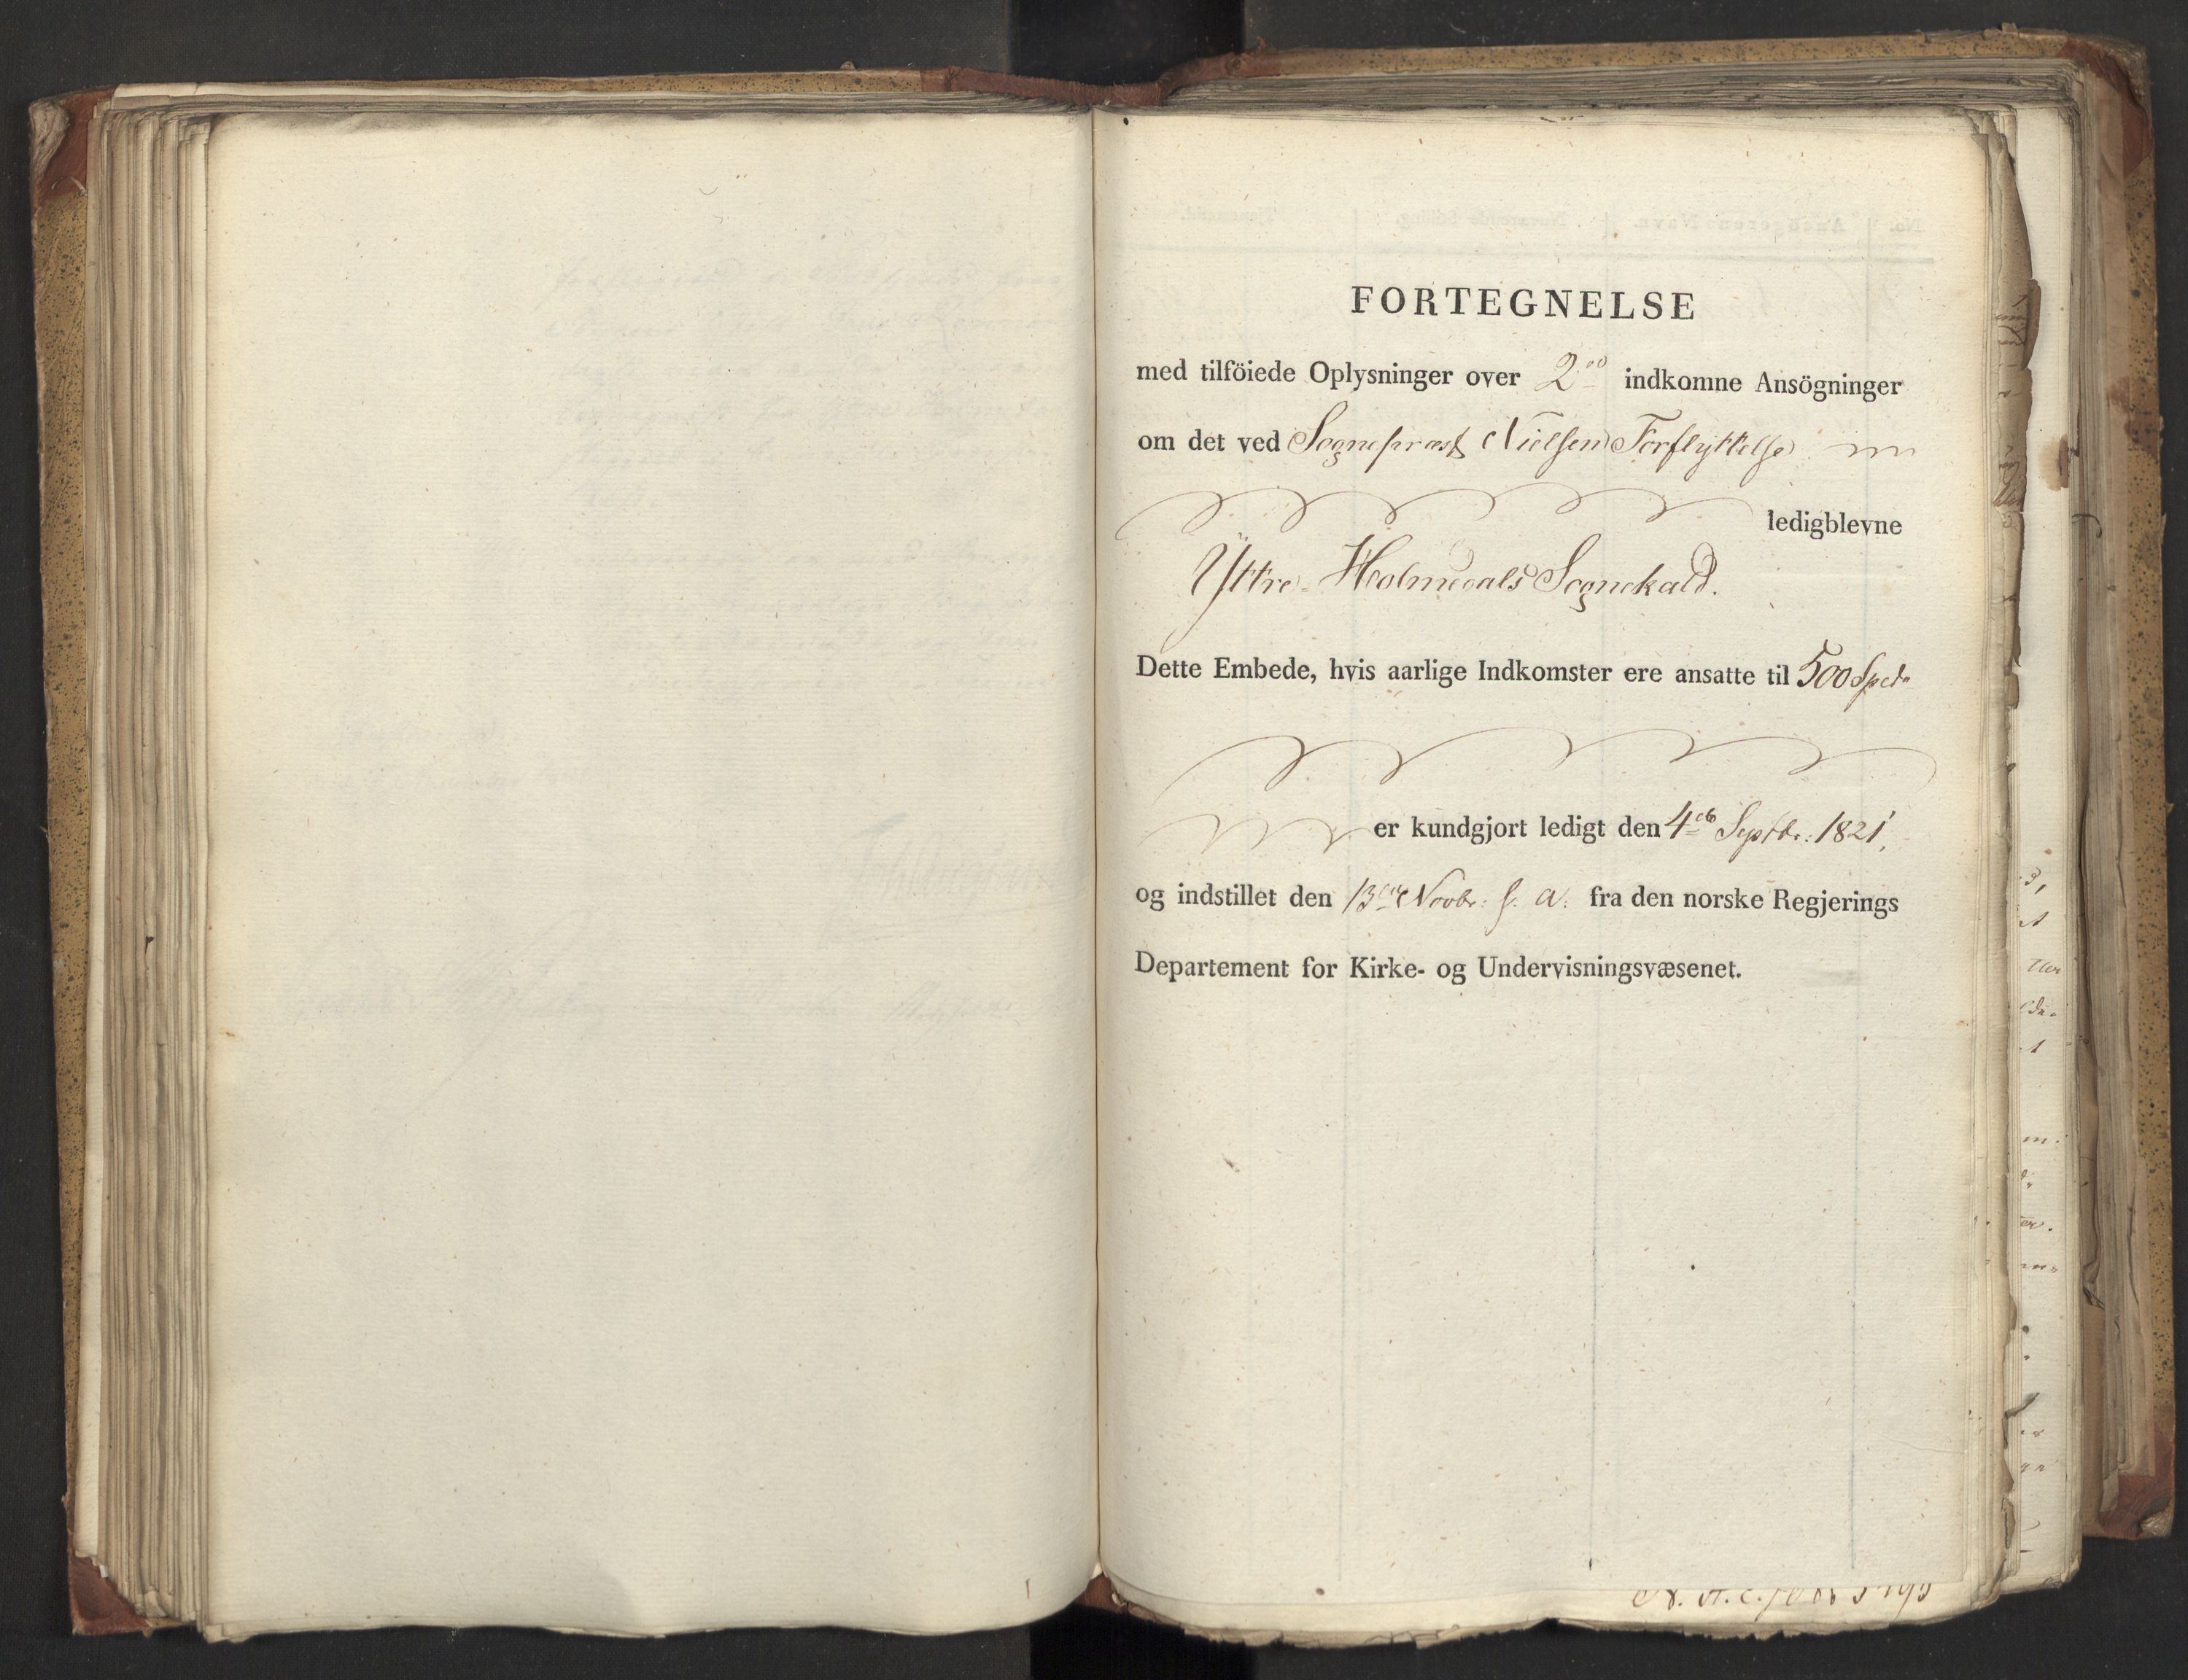 FORTEGNELSE
med tilföiede Oplysninger over 2de indkomne Ansögninger
om det ved Sognepræst Nielsens Forflyttelse
ledigblevne
Yttre-Holmedals Sognekald.
Dette Embede, hvis aarlige Indkomster ere ansatte til 500 Spd.
er kundgjort ledigt den 4de Septbr: 1821,
og indstillet den 13de Novbr: s. A. fra den norske Regjerings
Departement for Kirke- og Undervisningsvæsenet.